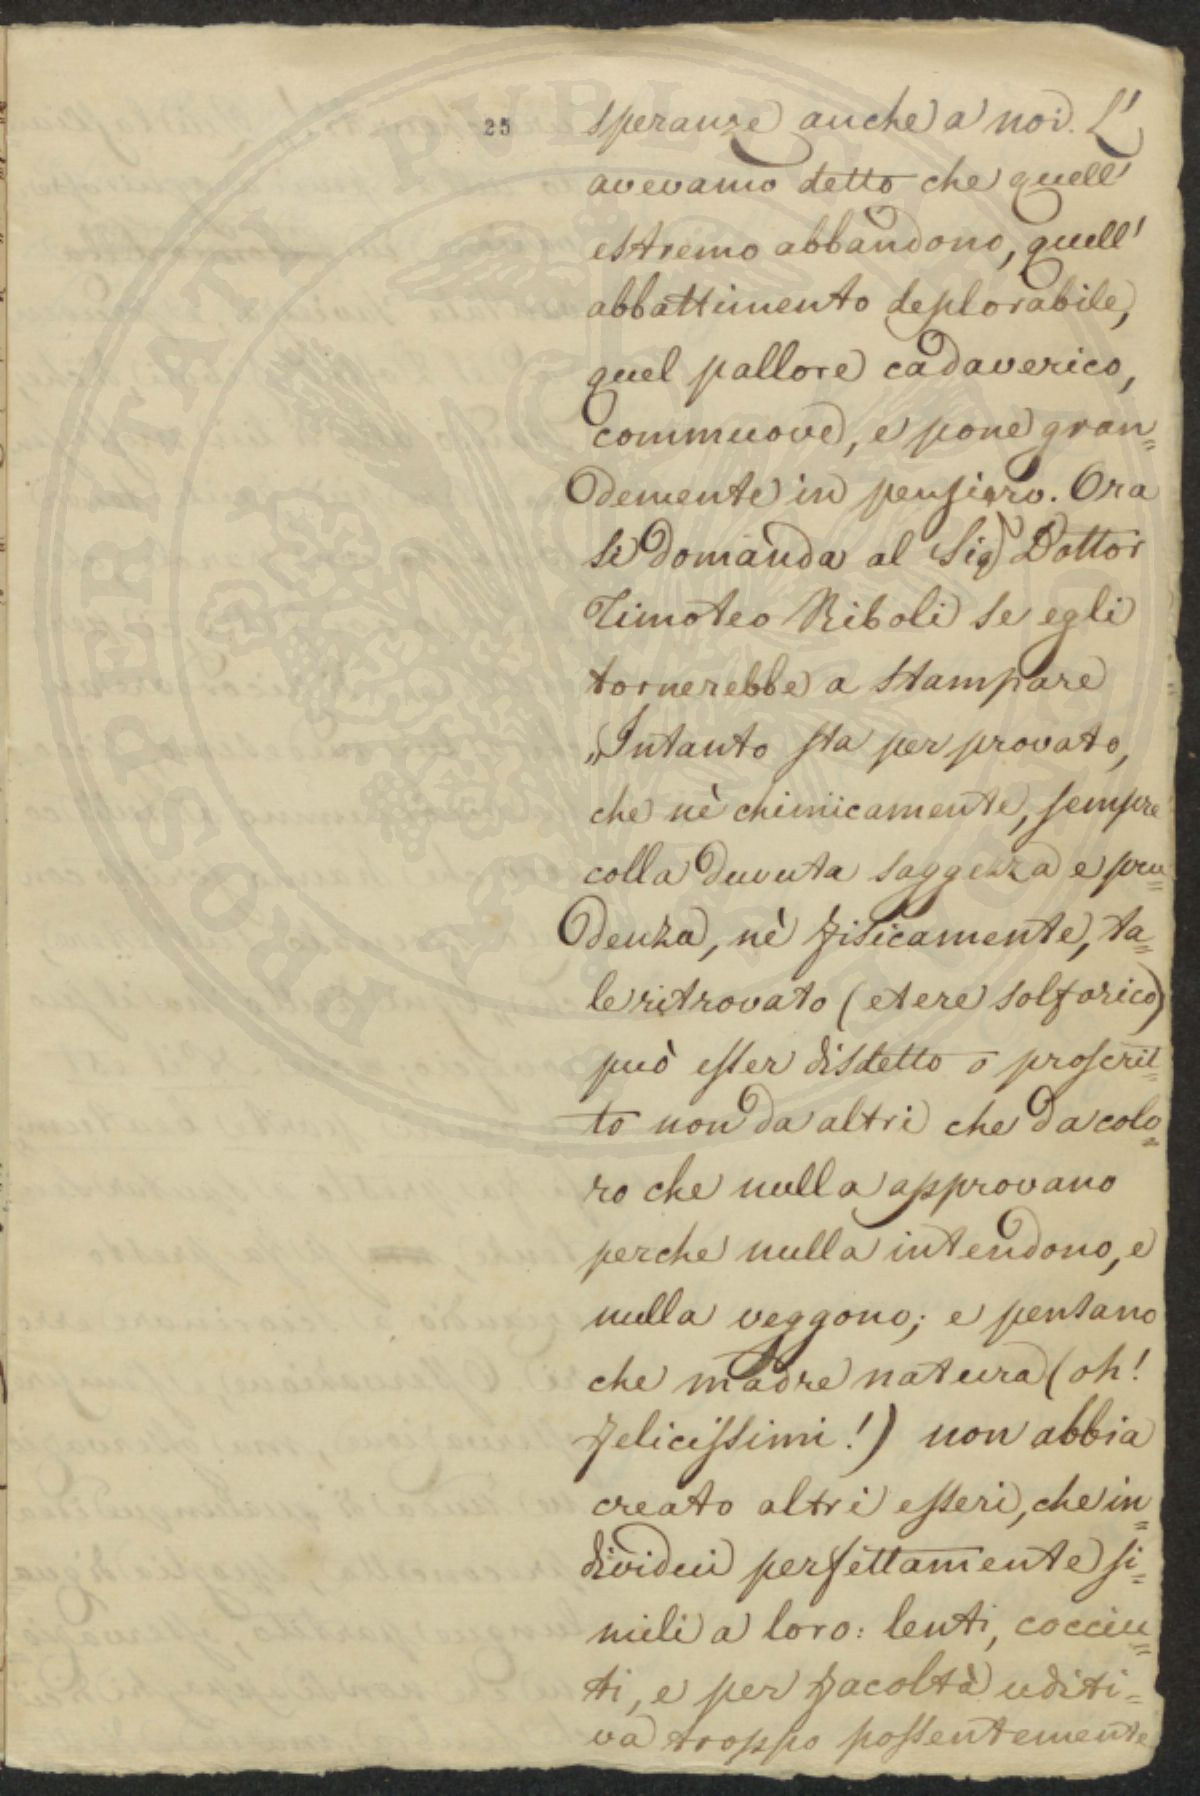 25
speranze anche a noi. L'
avevamo detto che quell'
estremo abbandono, quell'
abbattimento deplorabile,
quel pallore cadaverico,
commuove, e pone gran=
demente in pensiero. Ora
si domanda al Sig Dottor
Timoteo Riboli se egli
tornerebbe a stampare
„Intanto sta per provato,
che nè chimicamente, sempre
colla duvuta saggezza e pru=
denza, nè fisicamente, ta=
le ritrovato (etere solforico)
può esser disdetto o proscrit=
to non da altri che da colo=
ro che nulla approvano
perche nulla intendono, e
nulla veggono; e pensano
che madre natura (oh!
felicissimi!) non abbia
creato altri esseri, che in=
dividui perfettamente si=
mili a loro: lenti, cocciu=
ti, e per facoltà uditi=
va troppo possentemente
PROSPERITATI PVBLICAE